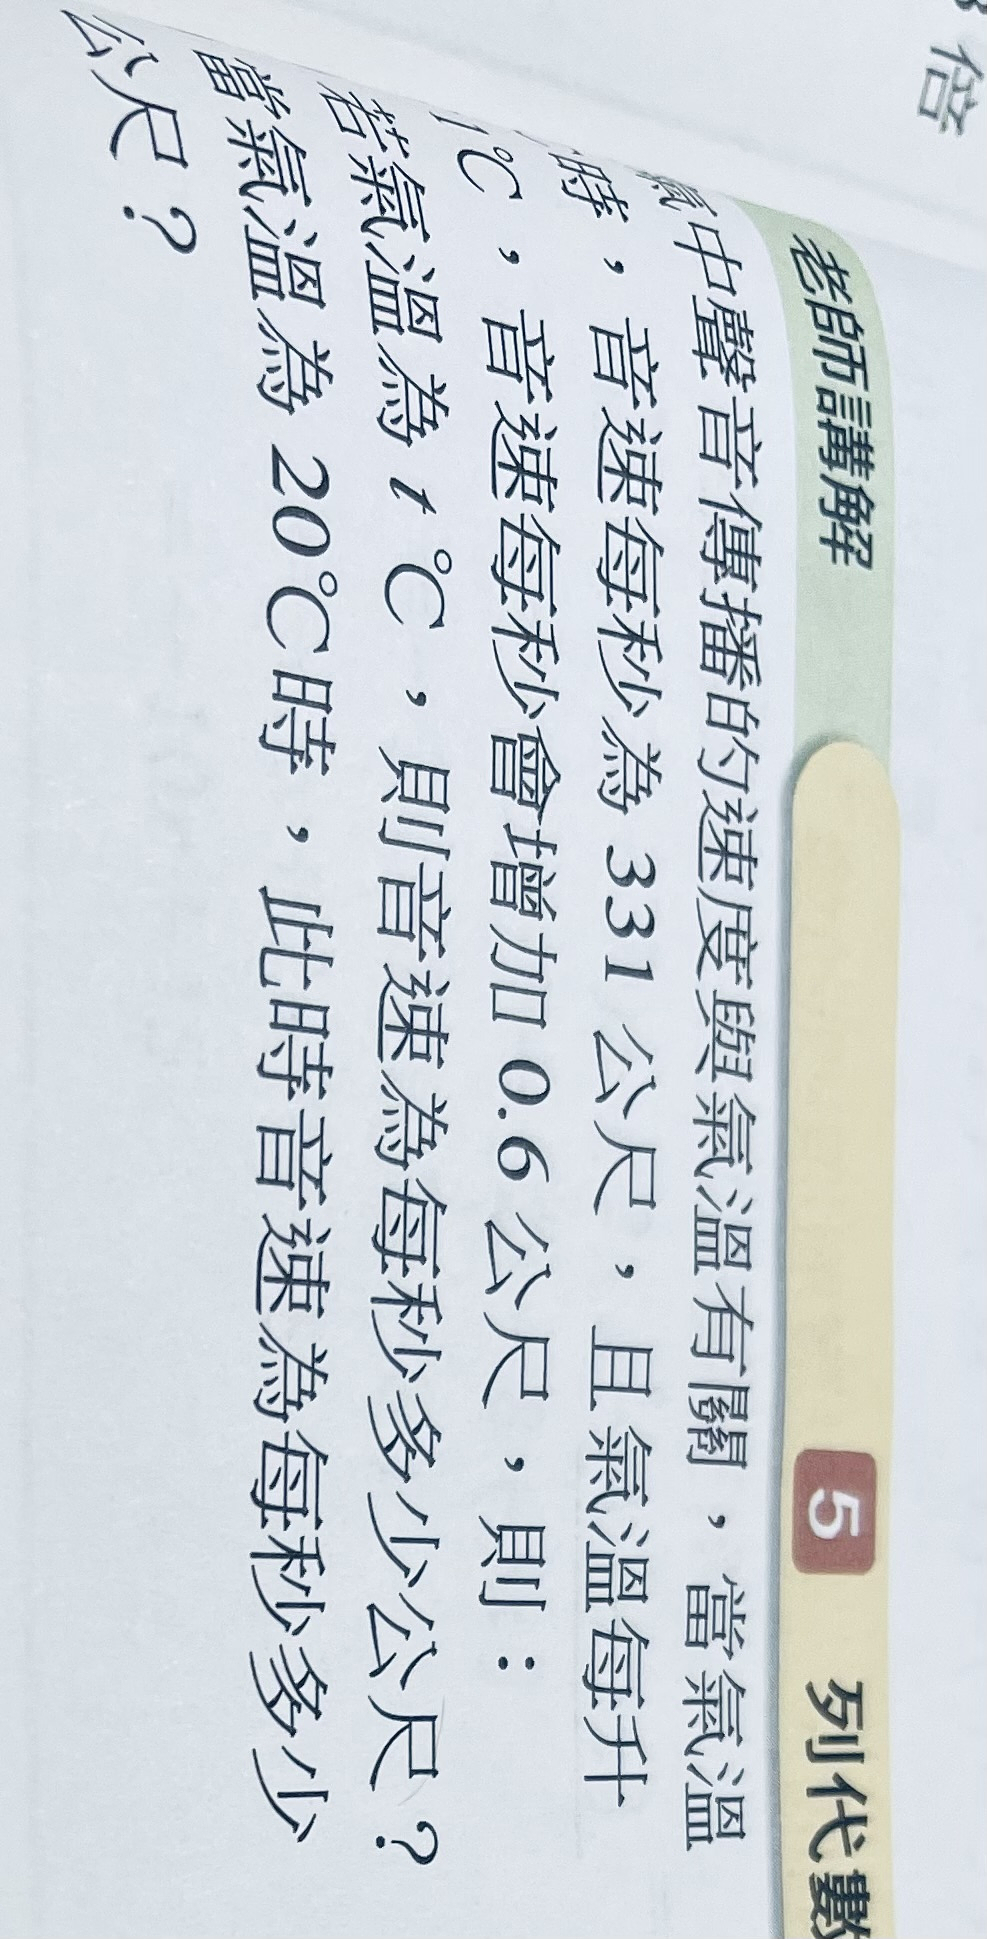 倍
老師講解 5 列代數
氣中聲音傳播的速度與氣溫有關，當氣溫
時，音速每秒為 331 公尺，且氣溫每升
1℃，音速每秒會增加 0.6 公尺，則：
若氣溫為 t ℃，則音速為每秒多少公尺？
當氣溫為 20℃時，此時音速為每秒多少
公尺？